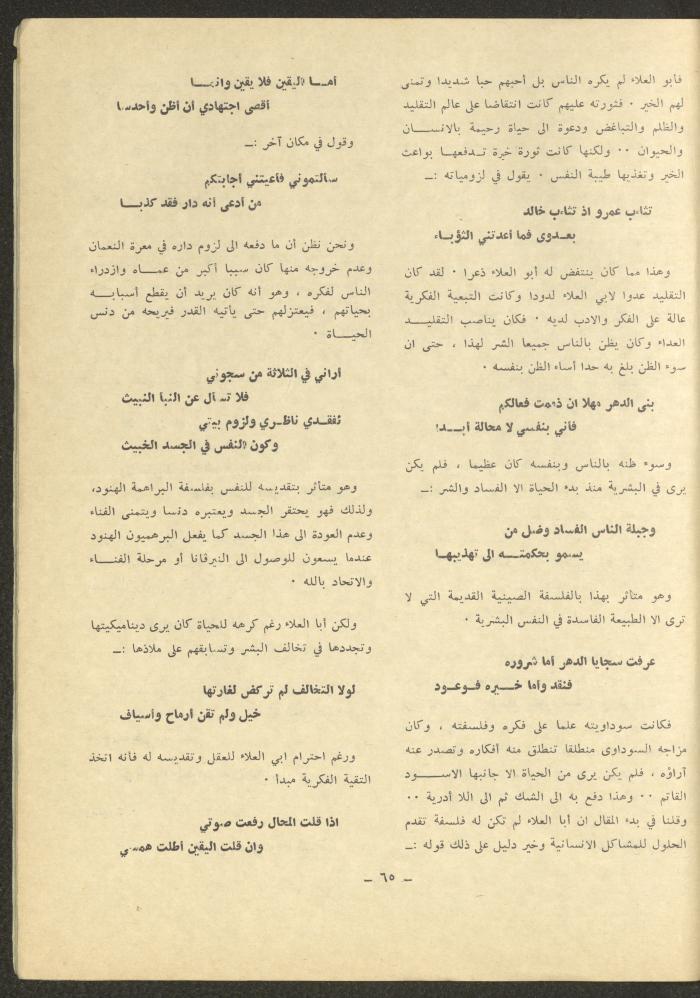 فأبو العلاء لم يكره الناس بل أحبهم حبا شديدا وتمنى
لهم الخير . فثورته عليهم كانت انتقاضا على عالم التقليد
والظلم والتباغض ودعوة الى حياة رحيمة بالانســان
والحيوان .. ولكنها كانت ثورة خيرة تـدفعهـا بواعث
الخير وتغذيها طيبة النفس . يقول في لزومياته :ـ
تثاءب عمرو اذ تثاءب خالد
بعـدوى فما أعدتني الثؤبـاء
وهذا مما كان ينتفض له أبو العلاء ذعرا . لقد كان
التقليد عدوا لابي العلاء لدودا وكانت التبعية الفكرية
عالة على الفكر والادب لديه . فكان يناصب التقليـــد
العداء وكان يظن بالناس جميعا الشر لهذا ، حتى ان
سوء الظن بلغ به حدا أساء الظن بنفسه .
بنى الدهر مهلا ان ذممت فعالكم
فأني بنفسي لا محالة أبــدا
وسوء ظنه بالناس وبنفسه كان عظيما ، فلم يكن
يرى في البشرية منذ بدء الحياة الا الفساد والشر :ـ
وجبلة الناس الفساد وضل من
يسمو بحكمتـــه الى تهذيبهـا
وهو متأثر بهذا بالفلسفة الصينية القديمة التي لا
ترى الا الطبيعة الفاسدة في النفس البشرية .
عرفت سجايا الدهر أما شروره
فنقد وأما خـــيره فـوعود
فكانت سوداويته علما على فكره وفلسفته ، وكان
مزاجه السوداوى منطلقا تنطلق منه أفكاره وتصدر عنه
آراؤه ، فلم يكن يرى من الحياة الا جانبها الاســـود
القاتم .. وهذا دفع به الى الشك ثم الى اللا أدرية ..
وقلنا في بدء المقال ان أبا العلاء لم تكن له فلسفة تقدم
الحلول للمشاكل الانسانية وخير دليل على ذلك قوله :ـ
أمــا اليقين فلا يقين وانمـا
أقصى اجتهادي أن أظن وأحدسا
وقول في مكان آخر :ـ
سألتموني فأعيتني أجابتكم
من أدعى أنه دار فقد كذبــا
ونحن نظن أن ما دفعه الى لزوم داره في معرة النعمان
وعدم خروجه منها كان سببا أكبر من عمــاه وازدراء
الناس لفكره ، وهو أنه كان يريد أن يقطع أسبابــه
بحياتهم ، فيعتزلهم حتى يأتيه القدر فيريحه من دنس
الحيــاة .
أراني في الثلاثة من سجوني
فلا تسأل عن النبأ النبيث
لفقـدي ناظـري ولزوم بيتي
وكون النفس في الجسد الخبيث
وهو متأثر بتقديسه للنفس بفلسفة البراهمة الهنود،
ولذلك فهو يحتقر الجسد ويعتبره دنسا ويتمنى الفناء
وعدم العودة الى هذا الجسد كما يفعل البرهميون الهنود
عندما يسعون للوصول الى النيرفانا أو مرحلة الفنــاء
والاتحاد بالله .
ولكن أبا العلاء رغم كرهه للحياة كان يرى ديناميكيتها
وتجددها في تخالف البشر وتسابقهم على ملاذها :ـ
لولا التخالف لم تركض لغارتها
خيل ولم تقن أرماح وأسياف
ورغم احترام ابي العلاء للعقل وتقديسه له فأنه اتخذ
التقية الفكرية مبدأ .
اذا قلت المحال رفعت صوتي
وان قلت اليقين أطلت همسي
ـ ٦٥ ـ